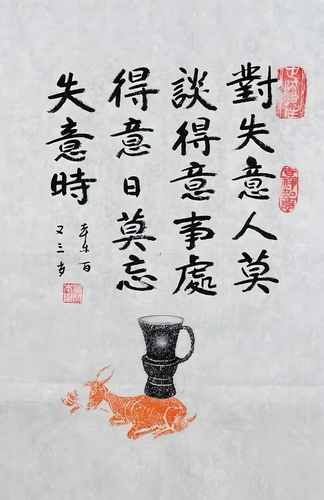 對失意人莫
談得意事處
得意日莫忘
失意時
百
又三岁